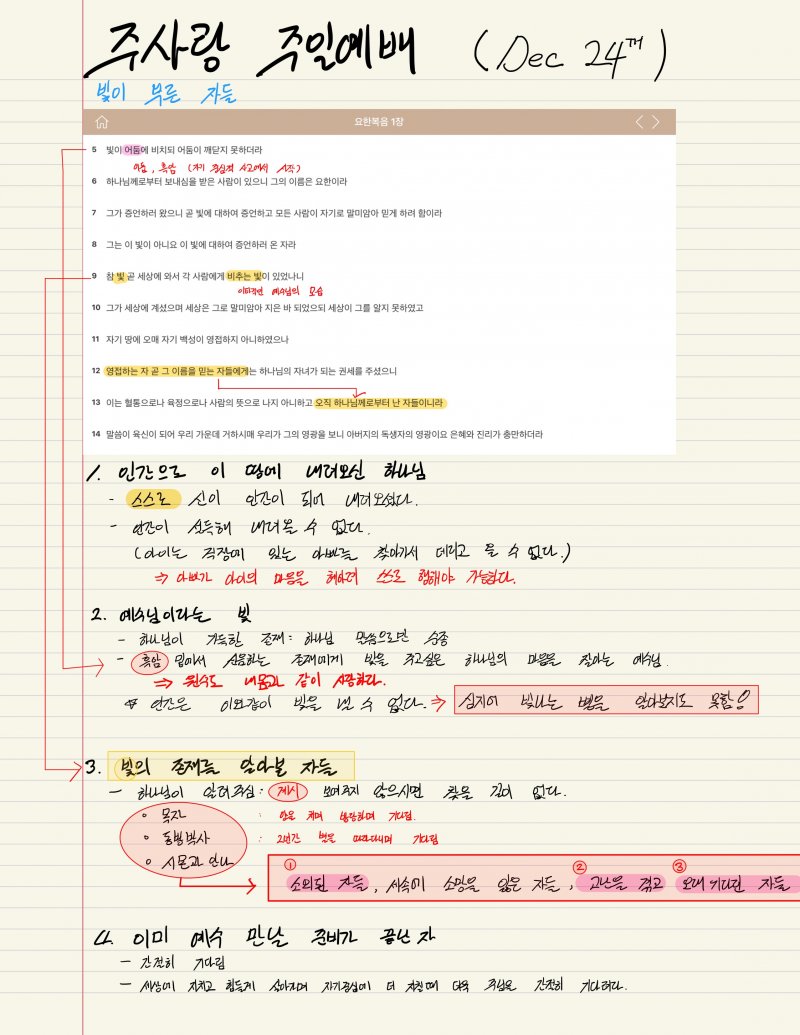 주사랑 주일예배 (Dec 24th)
빛이 부른 자들
요한복음 1장
5 빛이 어둠에 비치되 어둠이 깨닫지 못하더라
어둠, 흑암 (자기 중심적 사고에서 시작)
6 하나님께로부터 보내심을 받은 사람이 있으니 그의 이름은 요한이라
7 그가 증언하러 왔으니 곧 빛에 대하여 증언하고 모든 사람이 자기로 말미암아 믿게 하려 함이라
8 그는 이 빛이 아니요 이 빛에 대하여 증언하러 온 자라
9 참 빛 곧 세상에 와서 각 사람에게 비추는 빛이 있었나니
이타적인 예수님의 모습
10 그가 세상에 계셨으며 세상은 그로 말미암아 지은 바 되었으되 세상이 그를 알지 못하였고
11 자기 땅에 오매 자기 백성이 영접하지 아니하였으나
12 영접하는 자 곧 그 이름을 믿는 자들에게는 하나님의 자녀가 되는 권세를 주셨으니
13 이는 혈통으로나 육정으로나 사람의 뜻으로 나지 아니하고 오직 하나님께로부터 난 자들이니라
14 말씀이 육신이 되어 우리 가운데 거하시매 우리가 그의 영광을 보니 아버지의 독생자의 영광이요 은혜와 진리가 충만하더라
1. 인간으로 이 땅에 내려오신 하나님
- 스스로 신이 인간이 되어 내려오셨다.
- 인간이 설득해 내려올 수 없다.
(아이는 직장에 있는 아빠를 찾아가서 데리고 올 수 없다.)
⇒ 아빠가 아이의 마음을 헤아려 스스로 행해야 가능하다.
2. 예수님이라는 빛
- 하나님이 가득한 존재: 하나님 말씀으로만 순종
- 흑암 밑에서 신음하는 존재에게 빛을 주고싶은 하나님의 마음을 닮아는 예수님.
⇒ 원수도 내몸과 같이 사랑하다.
* 인간은 이와같이 빛을 낼 수 없다. ⇒ 심지어 빛나는 별을 알아보지도 못함!
3. 빛의 존재를 알아볼 자들
- 하나님이 알려주심: 계시 보여주지 않으시면 찾을 길이 없다.
• 목자 : 양을 치며 기다림.
• 동방박사 : 2년간 별을 따라다니며 기다림
• 시몬과 안나
① ② ③
소외된 자들, 세속에 소망을 잃은 자들, 고난을 겪고 오래 기다린 자들
4. 이미 예수 만날 준비가 끝난 자
- 간절히 기다림
- 세상에 지치고 힘들게 살아가며 자기중심에 더 지칠때 더욱 주님을 간절히 기다린다.